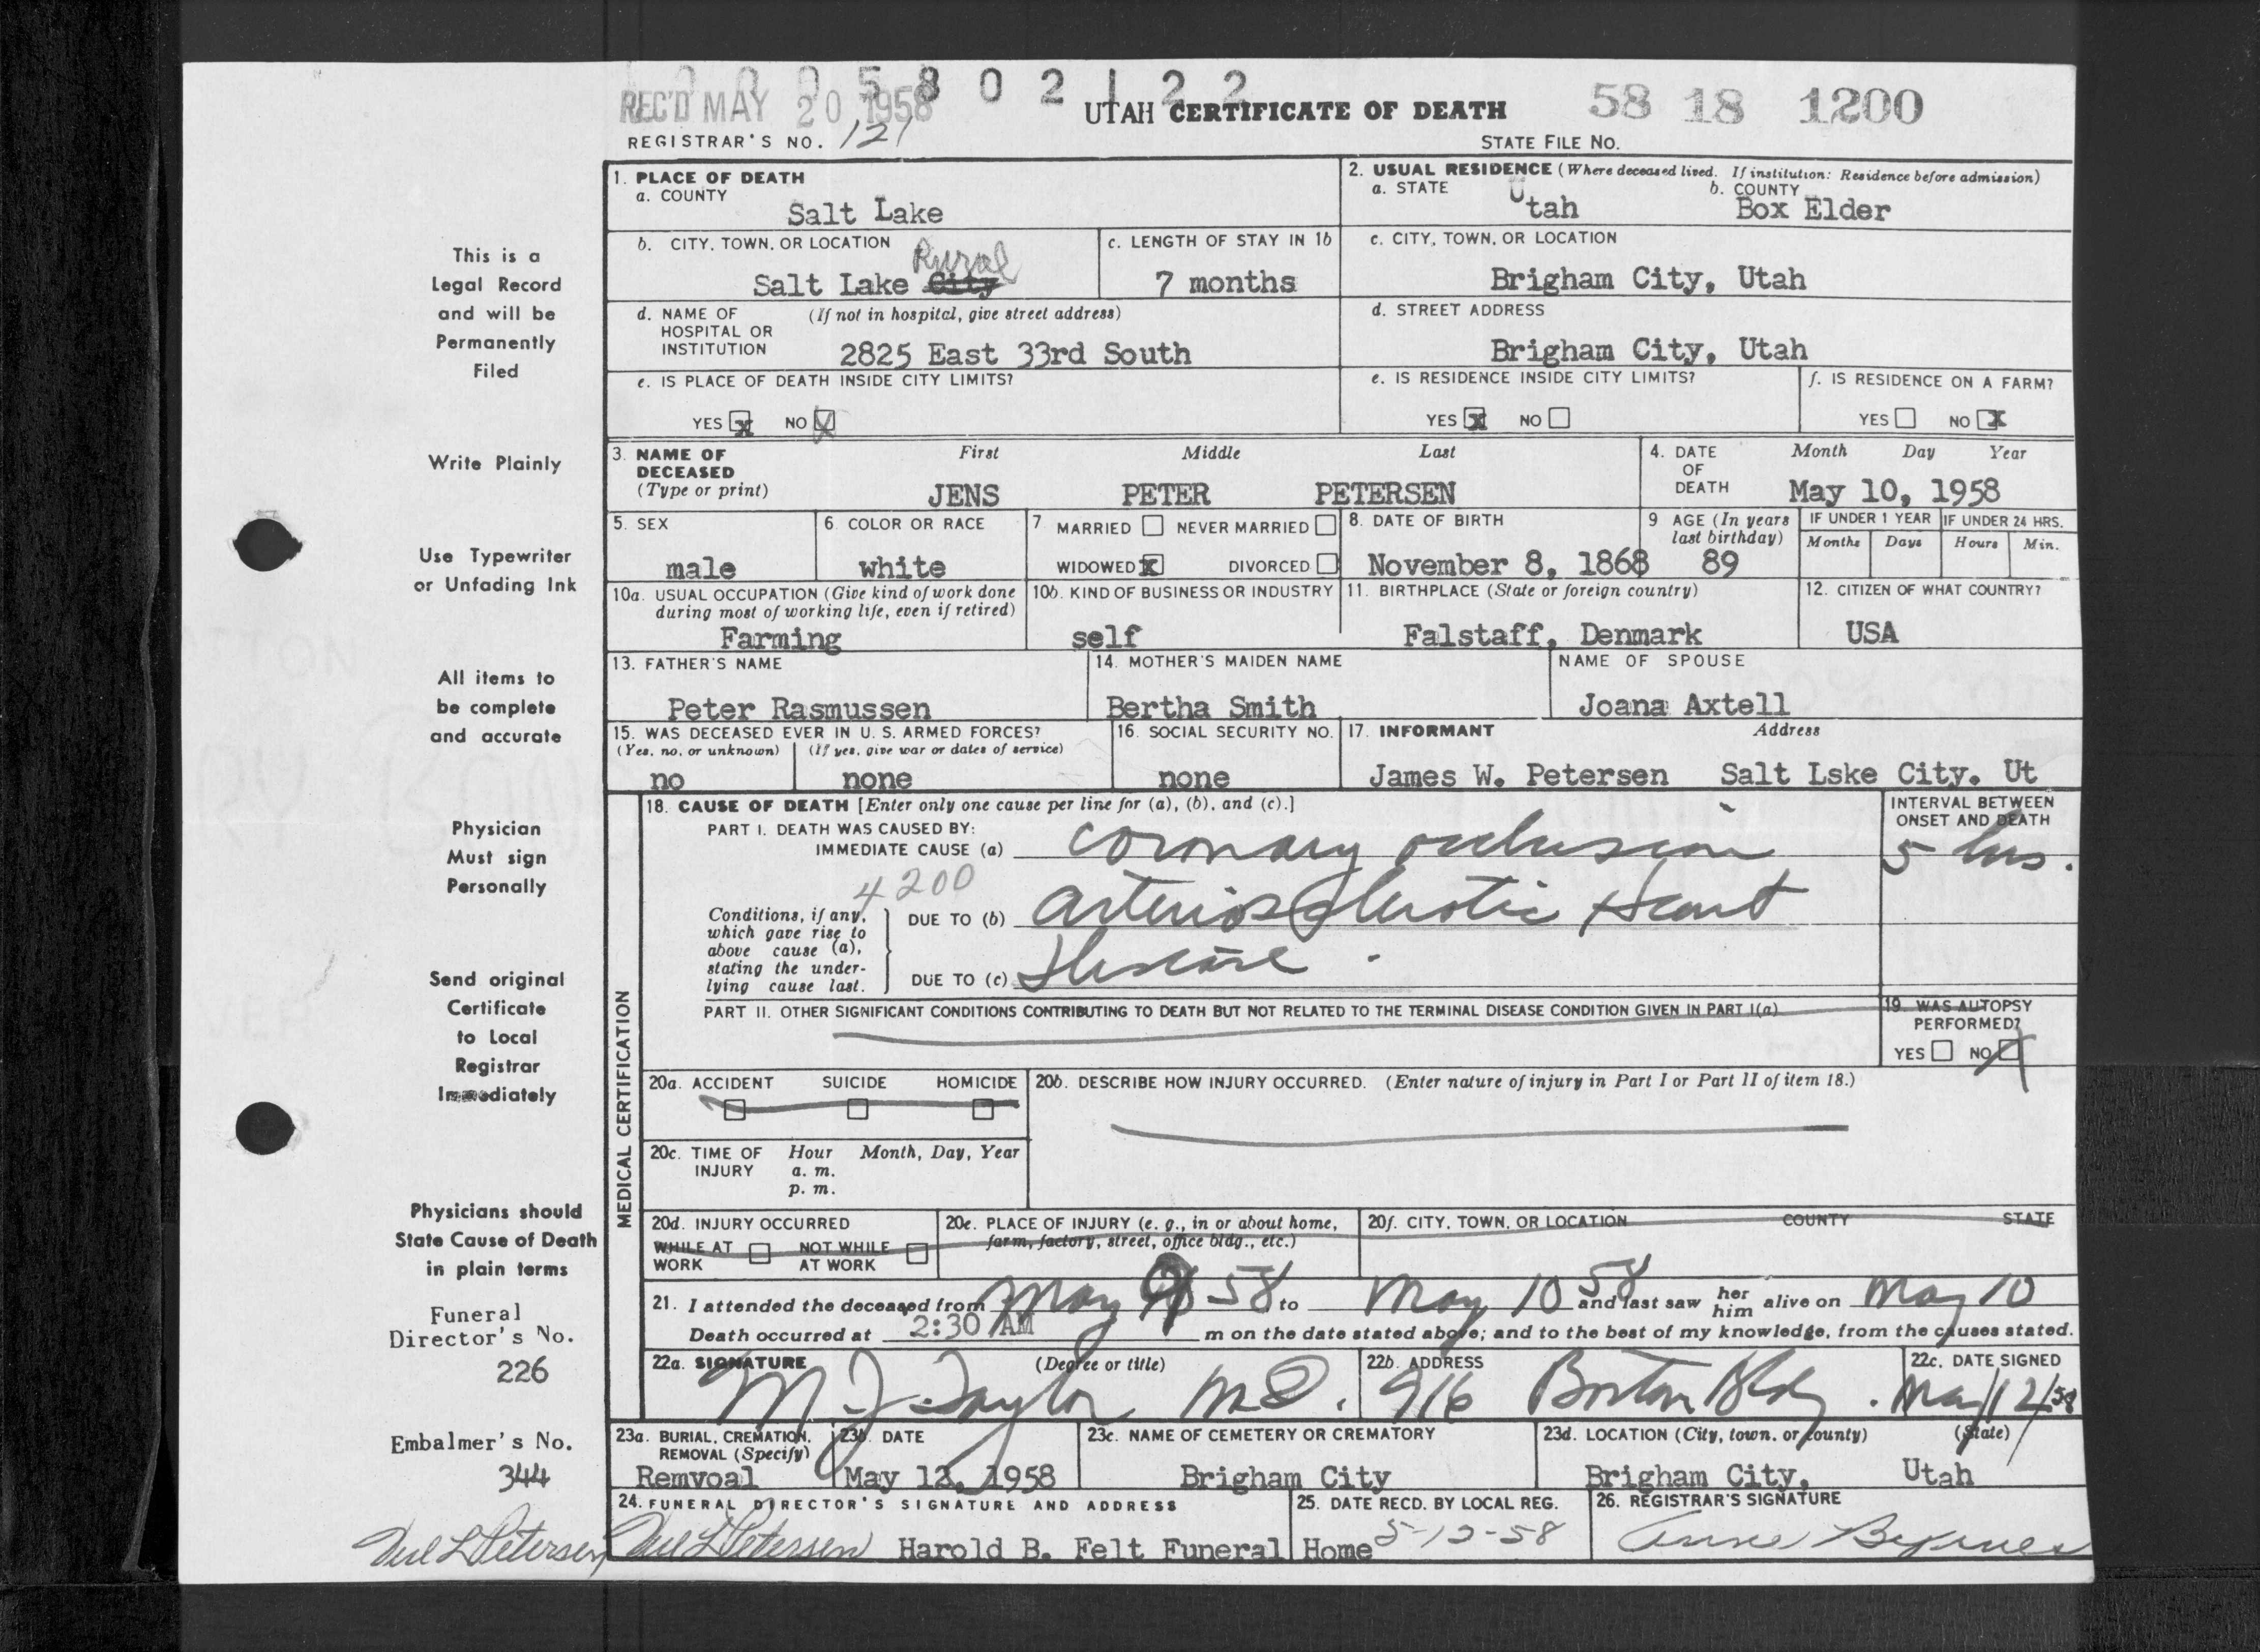 0 0 0 5 8 0 2 1 2 2
REC'D MAY 20 1958
UTAH CERTIFICATE OF DEATH
58 18 1200
REGISTRAR'S NO. 121
STATE FILE NO.
This is a
Legal Record
and will be
Permanently
Filed
Write Plainly
Use Typewriter
or Unfading Ink
All items to
be complete
and accurate
Physician
Must sign
Personally
Send original
Certificate
to Local
Registrar
Immediately
Physicians should
State Cause of Death
in plain terms
Funeral
Director's No.
226
Embalmer's No.
344
1. PLACE OF DEATH
a. COUNTY
Salt Lake
2. USUAL RESIDENCE (Where deceased lived. If institution: Residence before admission)
a. STATE
Utah
b. COUNTY
Box Elder
b. CITY, TOWN, OR LOCATION
Rural
Salt Lake City
c. LENGTH OF STAY IN 1b
7 months
c. CITY, TOWN, OR LOCATION
Brigham City, Utah
d. NAME OF HOSPITAL OR INSTITUTION
(If not in hospital, give street address)
2825 East 33rd South
d. STREET ADDRESS
Brigham City, Utah
e. IS PLACE OF DEATH INSIDE CITY LIMITS?
YES x NO X
e. IS RESIDENCE INSIDE CITY LIMITS?
YES x NO
f. IS RESIDENCE ON A FARM?
YES NO X
3. NAME OF DECEASED
(Type or print)
First Middle Last
JENS PETER PETERSEN
4. DATE OF DEATH
Month Day Year
May 10, 1958
5. SEX
male
6. COLOR OR RACE
white
7 MARRIED NEVER MARRIED
WIDOWED X DIVORCED
8. DATE OF BIRTH
November 8, 1868
9 AGE (In years last birthday)
89
IF UNDER 1 YEAR
Months Days
IF UNDER 24 HRS.
Hours Min.
10a. USUAL OCCUPATION (Give kind of work done during most of working life, even if retired)
Farming
10b. KIND OF BUSINESS OR INDUSTRY
self
11. BIRTHPLACE (State or foreign country)
Falstaff, Denmark
12. CITIZEN OF WHAT COUNTRY?
USA
13. FATHER'S NAME
Peter Rasmussen
14. MOTHER'S MAIDEN NAME
Bertha Smith
NAME OF SPOUSE
Joana Axtell
15. WAS DECEASED EVER IN U. S. ARMED FORCES?
(Yes, no, or unknown) (If yes, give war or dates of service)
no none
16. SOCIAL SECURITY NO.
none
17. INFORMANT Address
James W. Petersen Salt Lske City. Ut
MEDICAL CERTIFICATION
18. CAUSE OF DEATH [Enter only one cause per line for (a), (b), and (c).]
INTERVAL BETWEEN ONSET AND DEATH
PART I. DEATH WAS CAUSED BY:
IMMEDIATE CAUSE (a) coronary occlusion
5 hrs.
4200
Conditions, if any, which gave rise to above cause (a), stating the underlying cause last.
DUE TO (b) arteriosclerotic Heart
DUE TO (c) Disease.
PART II. OTHER SIGNIFICANT CONDITIONS CONTRIBUTING TO DEATH BUT NOT RELATED TO THE TERMINAL DISEASE CONDITION GIVEN IN PART I(a)
19. WAS AUTOPSY PERFORMED?
YES NO X
20a. ACCIDENT SUICIDE HOMICIDE
20b. DESCRIBE HOW INJURY OCCURRED. (Enter nature of injury in Part I or Part II of item 18.)
20c. TIME OF INJURY
Hour Month, Day, Year
a. m.
p. m.
20d. INJURY OCCURRED
WHILE AT WORK NOT WHILE AT WORK
20e. PLACE OF INJURY (e. g., in or about home, farm, factory, street, office bldg., etc.)
20f. CITY, TOWN, OR LOCATION COUNTY STATE
21. I attended the deceased from May 9 58 to May 10 58 and last saw her him alive on May 10
Death occurred at 2:30 AM m on the date stated above; and to the best of my knowledge, from the causes stated.
22a. SIGNATURE (Degree or title)
M. J. Taylor M.D.
22b. ADDRESS
916 Boston Bldg.
22c. DATE SIGNED
May 12/58
23a. BURIAL, CREMATION, REMOVAL (Specify)
Remvoal
23b. DATE
May 12, 1958
23c. NAME OF CEMETERY OR CREMATORY
Brigham City
23d. LOCATION (City, town, or county) (State)
Brigham City, Utah
24. FUNERAL DIRECTOR'S SIGNATURE AND ADDRESS
L Petersen
L Petersen Harold B. Felt Funeral Home
25. DATE RECD. BY LOCAL REG.
5-12-58
26. REGISTRAR'S SIGNATURE
Anne